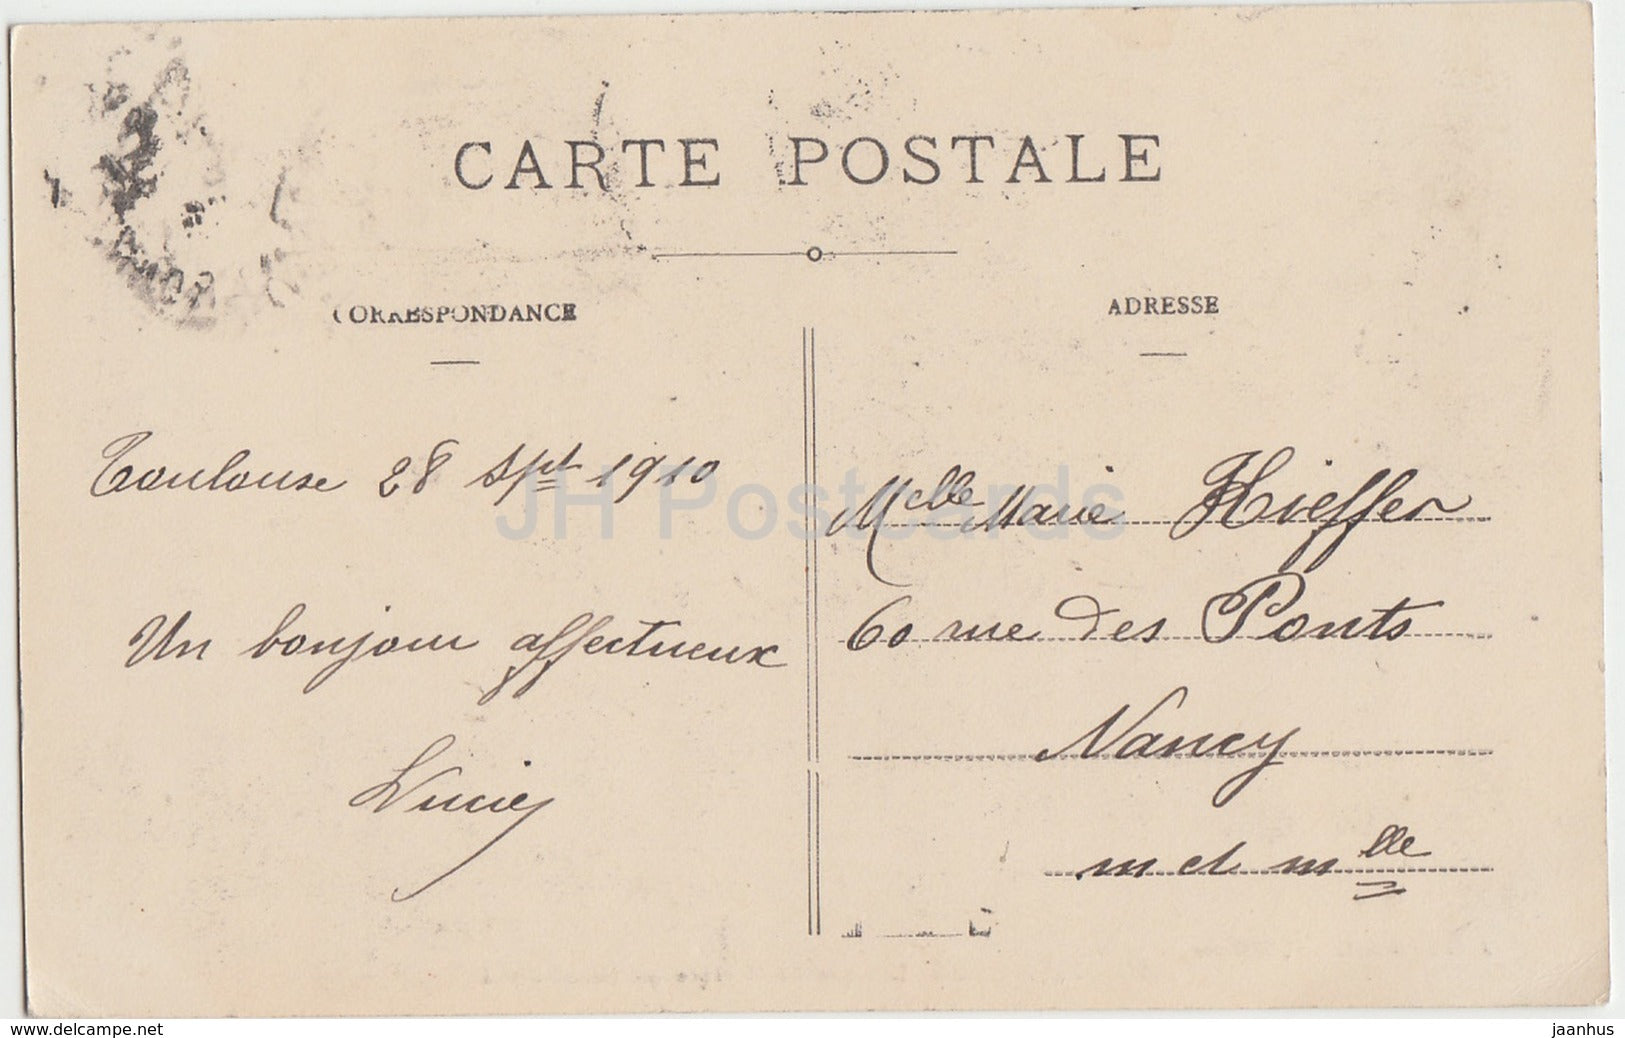 CARTE POSTALE
CORRESPONDANCE
ADRESSE
Toulouse 28 Spt 1910
Un bonjour affectueux
Melle Marie Kieffer
60 rue des Ponts
Nancy
m et mlle
JH Postcards
www.delcampe.net
jaanhus